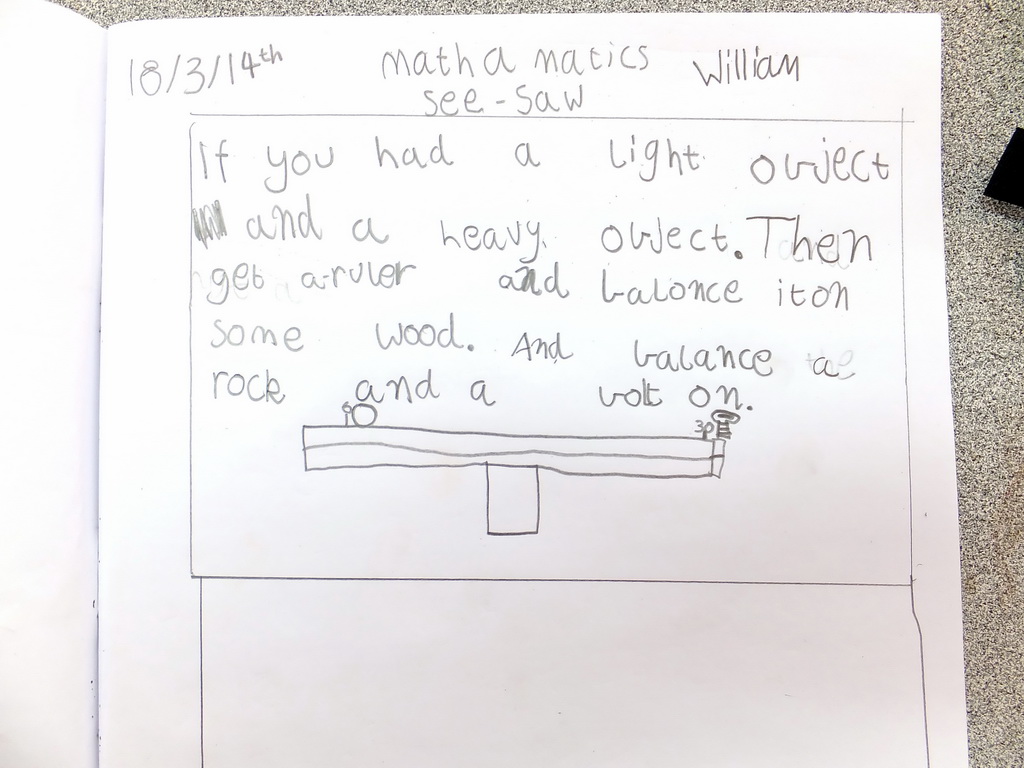 18/3/14th mathamatics William
see-saw
If you had a light object
and a heavy object. Then
get a ruler and balonce it on
some wood. And balance a
rock and a bolt on.